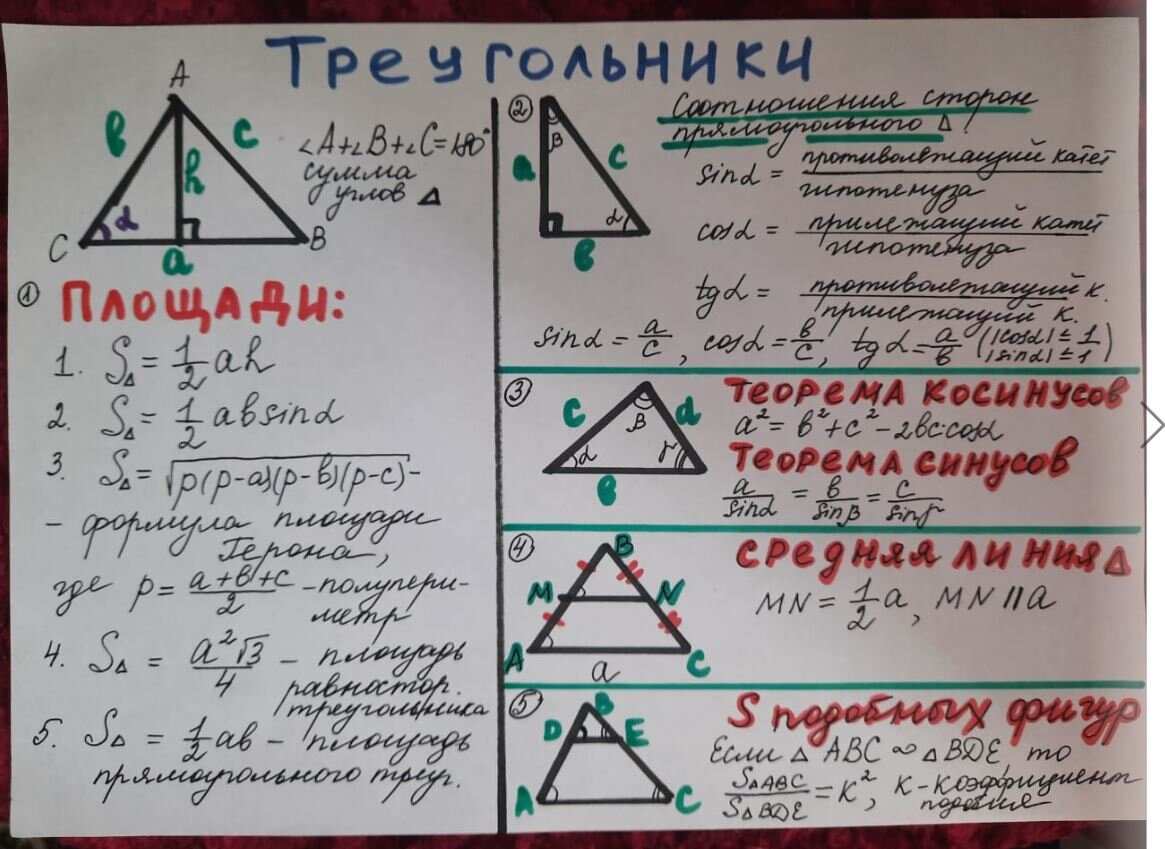 Треугольники
A
в
c
h
α
C
B
a
∠A+∠B+∠C=180°
сумма
углов Δ
① ПЛОЩАДИ:
1. SΔ = 1/2 ah
2. SΔ = 1/2 ab sinα
3. SΔ = √p(p-a)(p-в)(p-c) -
- формула площади
Герона,
где p = a+в+c/2 - полупери-
метр
4. SΔ = a²√3/4 - площадь
равностор.
треугольника
5. SΔ = 1/2 ab - площадь
прямоугольного треуг.
②
β
a
c
α
в
Соотношения сторон
прямоугольного Δ
sinα = противолежащий катет/гипотенуза
cosα = прилежащий катет/гипотенуза
tgα = противолежащий к./прилежащий к.
sinα = a/c, cosα = в/c, tgα = a/в (|cosα| ≤ 1
|sinα| ≤ 1)
③
c
β
a
α
γ
в
ТЕОРЕМА КОСИНУСОВ
a² = в² + c² - 2вc·cosα
ТЕОРЕМА СИНУСОВ
a/sinα = в/sinβ = c/sinγ
④
B
M
N
A
C
a
СРЕДНЯЯ ЛИНИЯ Δ
MN = 1/2 a, MN || a
⑤
B
D
E
A
C
S подобных фигур
Если Δ ABC ∾ Δ BDE то
SΔABC/SΔBDE = K², K - коэффициент
подобия